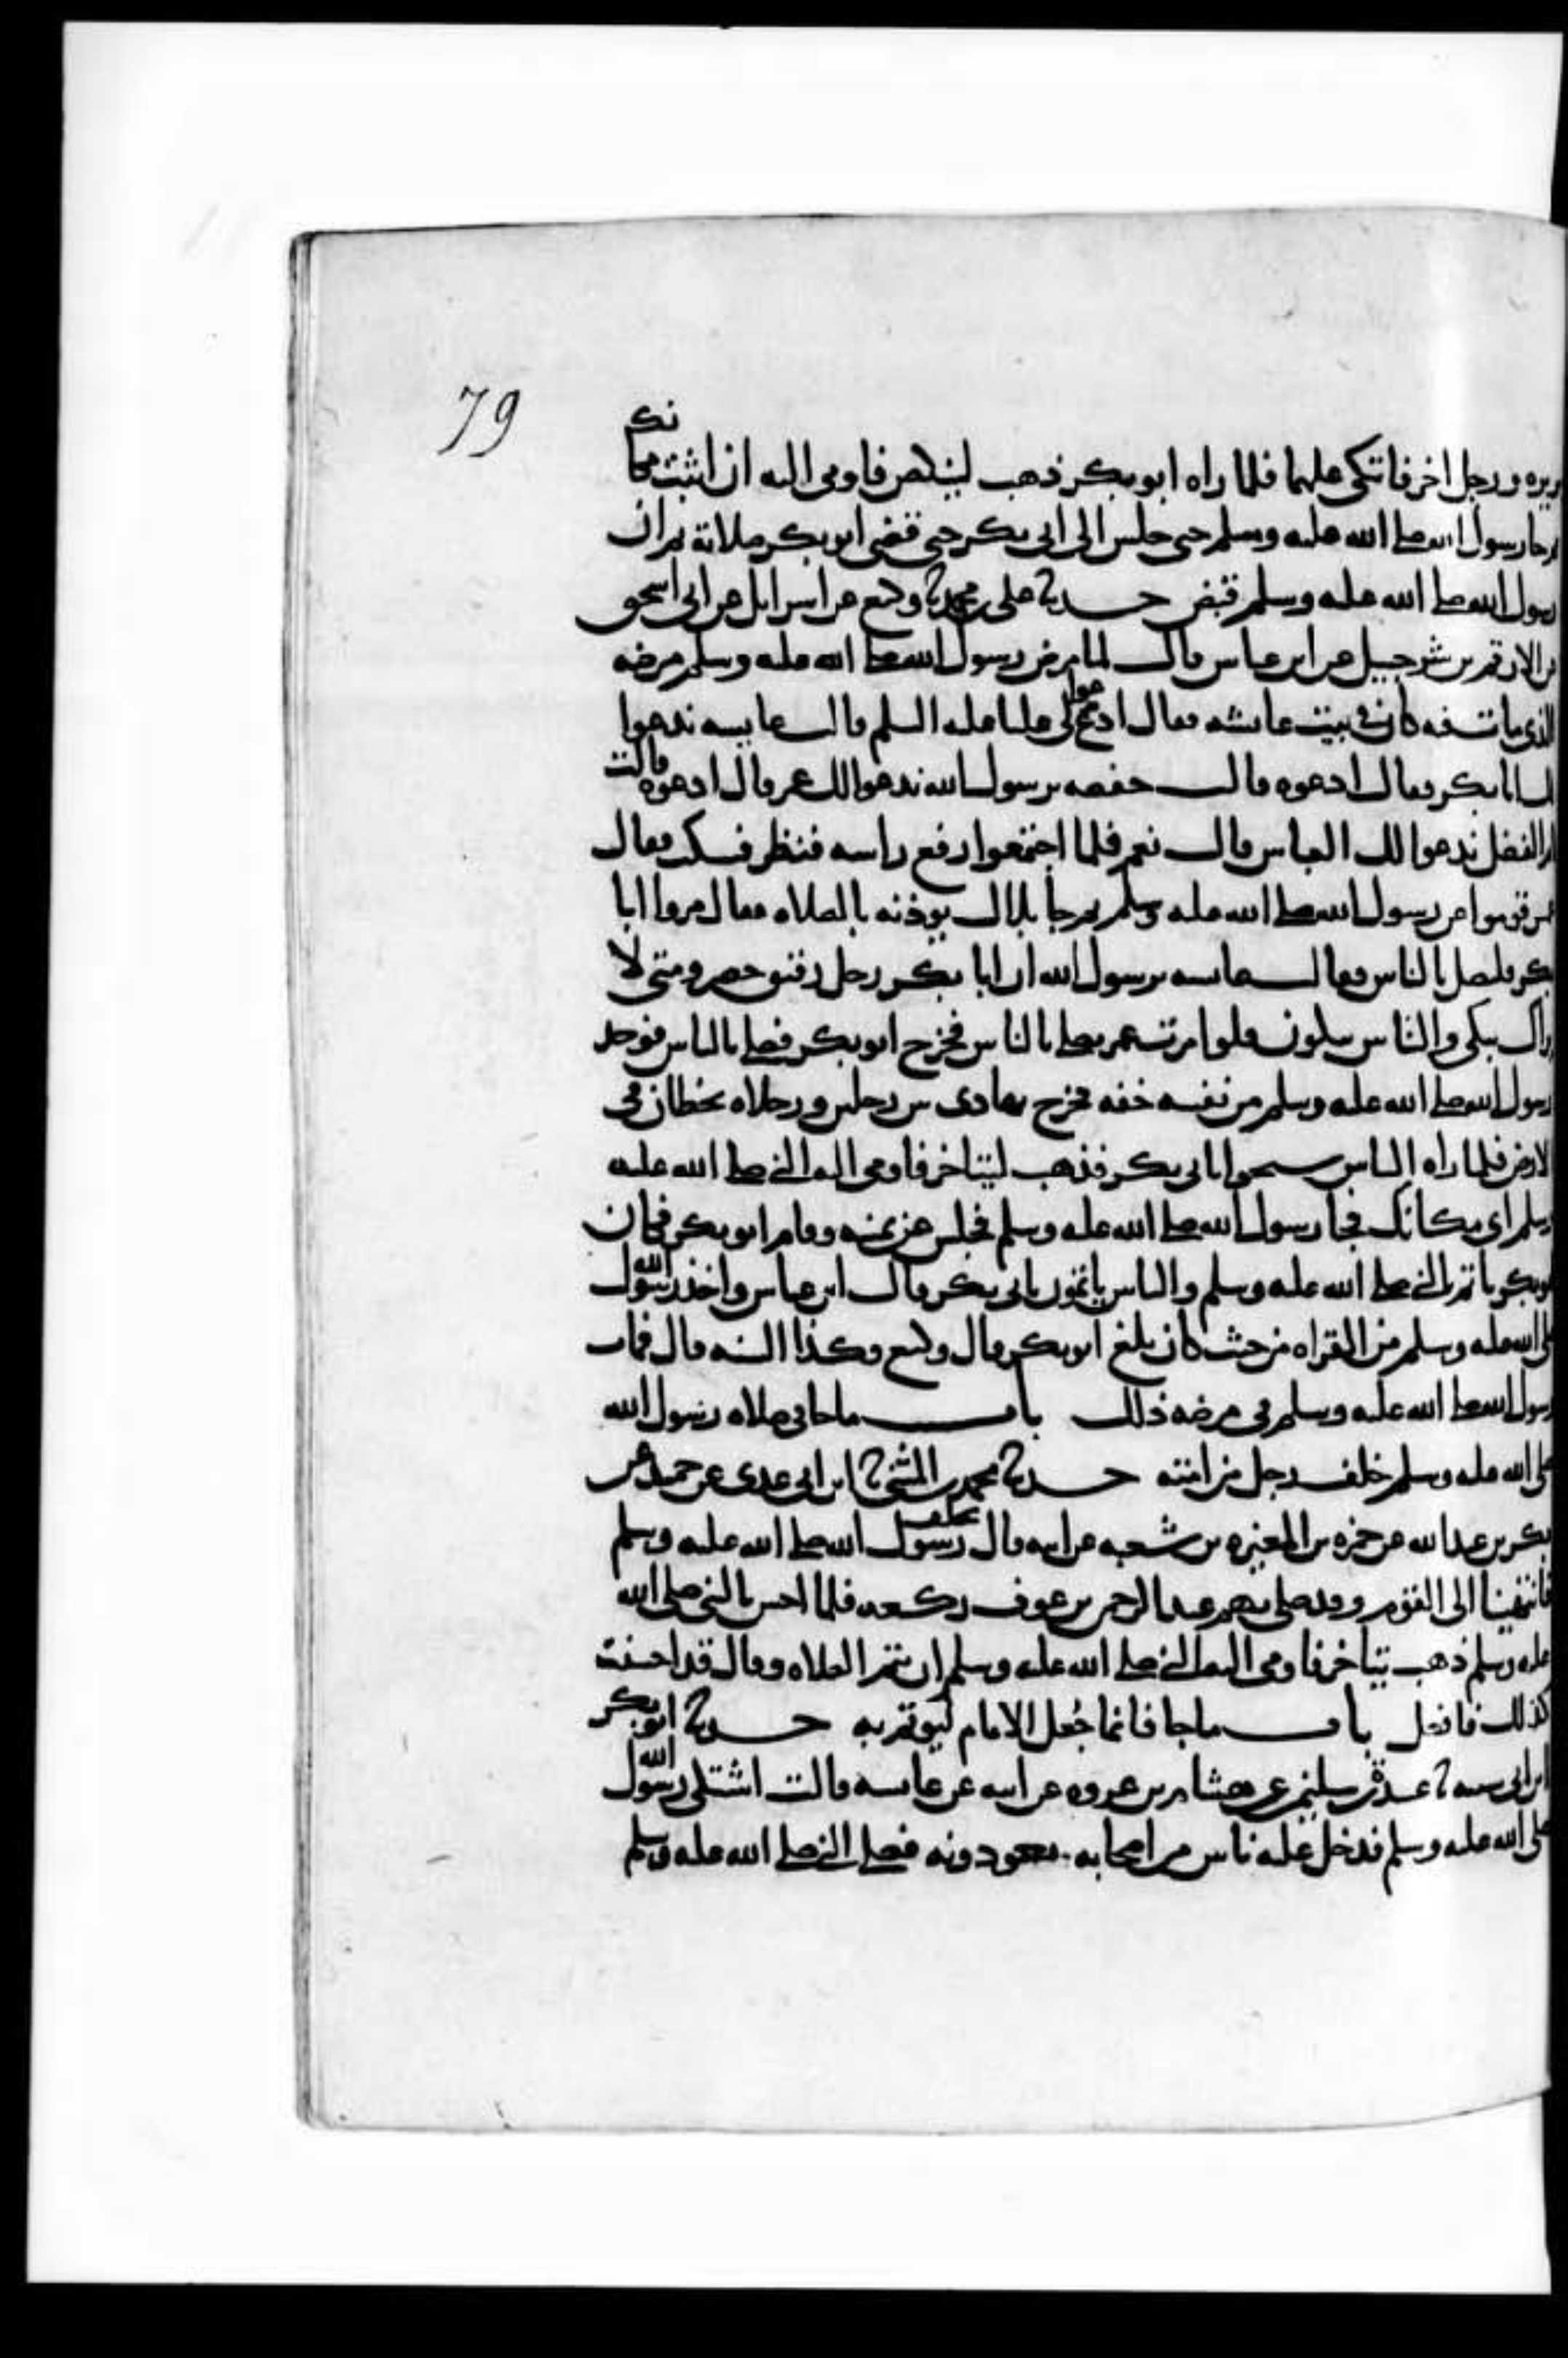 79
بريره ورجل اخر فاتكى عليهما فلما راه ابو بكر ذهب لينكص فاومى اليه ان اثبت مكانك
ثم جا رسول الله صلى الله عليه وسلم حتى جلس الى ابي بكر حتى قضى ابو بكر صلاته ثم ان
رسول الله صلى الله عليه وسلم قبض حدثنا على بن محمد ثنا وكيع عن اسرايل عن ابي اسحق
عن الارقم بن شرحبيل عن ابن عباس قال لما مرض رسول الله صلى الله عليه وسلم مرضه
الذي مات فيه كان في بيت عائشه فقال ادعوا لي عليا عليه السلم قالت عايشه ندعوا
لك ابا بكر فقال ادعوه قالت حفصه يرسول الله ندعوا لك عمر قال ادعوه قالت
ام الفضل ندعوا لك العباس قال نعم فلما اجتمعوا رفع راسه فنظر فسكت فقال
عمر قوموا عن رسول الله صلى الله عليه وسلم ثم جا بلال يوذنه بالصلاه فقال مروا ابا
بكر فليصل بالناس فقالت عايشه يرسول الله ان ابا بكر رجل رقيق حصر ومتى لا
يراك يبكي والناس يبكون فلو امرت عمر يصلي بالناس فخرج ابو بكر فصلى بالناس فوجد
رسول الله صلى الله عليه وسلم من نفسه خفه فخرج يهادى بين رجلين ورجلاه تخطان في
الارض فلما راه الناس سبحوا بابي بكر فذهب ليتاخر فاومى اليه النبي صلى الله عليه
وسلم اي مكانك فجا رسول الله صلى الله عليه وسلم فجلس عن يمينه وقام ابو بكر فكان
ابو بكر ياتم بالنبي صلى الله عليه وسلم والناس ياتمون بابي بكر قال ابن عباس واخذ رسول الله
صلى الله عليه وسلم من القراه من حيث كان بلغ ابو بكر قال وكيع وكذا السنه قال فمات
رسول الله صلى الله عليه وسلم في مرضه ذلك باب ما جا في صلاه رسول الله
صلى الله عليه وسلم خلف رجل من امته حدثنا محمد بن المثنى ثنا ابن ابي عدي عن حميد عن
بكر بن عبد الله عن حمزه بن المغيره بن شعبه عن ابيه قال تخلف رسول الله صلى الله عليه وسلم
فانتهينا الى القوم وقد صلى بهم عبد الرحمن بن عوف ركعه فلما احس بالنبي صلى الله
عليه وسلم ذهب يتاخر فاومى اليه النبي صلى الله عليه وسلم ان يتم الصلاه وقال قد احسنت
كذلك فافعل باب ما جا فانما جُعل الامام ليوتم به حدثنا ابو بكر
ابن ابي شيبه ثنا عبدة بن سليمن عن هشام بن عروه عن ابيه عن عايشه قالت اشتكى رسول الله
صلى الله عليه وسلم فدخل عليه ناس من اصحابه يعودونه فصلى النبي صلى الله عليه وسلم